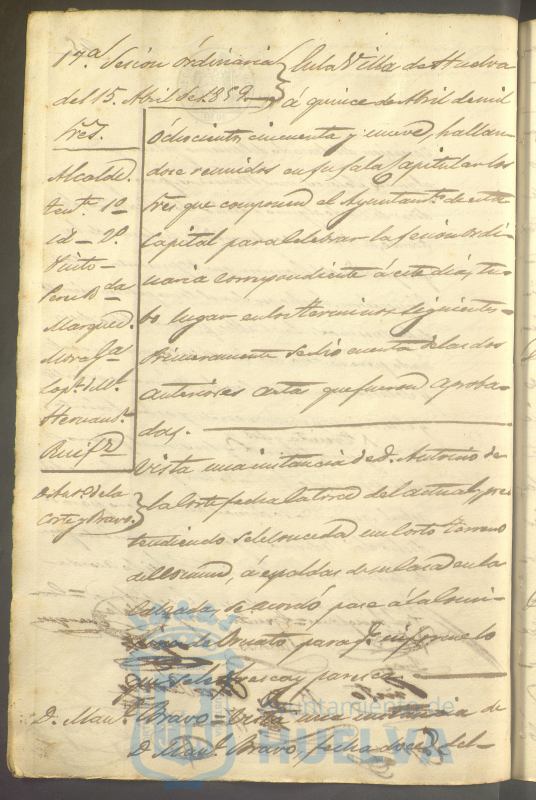 17ª Sesion Órdinaria
del 15. Abril de 1.859.
Sres.
Alcalde.
tente. 1º
id = 2º.
Pinto
Perez Rda
Marquez.
Mora Ga
Capt. de Mr.
Hernandz.
Ruifz
En la Villa de Huelva
á quince de Abril de mil
ochocientos cincuenta y nueve, hallan-
dose reunidos en su sala Capitular los
Sres que componen el Ayuntamto. de esta
Capital para celebrar la sesion ordi-
naria correspondiente á este dia, tu-
bo lugar en los terminos siguientes =
Primeramente se dio cuenta de las dos
anteriores actas que fueron aproba-
das.
D. Anto. de la
Corte y Bravo.
Vista una instancia de D. Antonio de
la Corte fecha catorce del actual, pre-
tendiendo se le conceda un corto terreno
del comun, á espaldas de su casa en la
Calzada, se acordó pase á la Comi-
sion de Ornato, para qe. informe lo
que se le ofrezca y parezca.
D. Manl. Bravo = Vista una instancia de
D. Manl. Bravo, fecha doce del
Ayuntamiento de
HUELVA